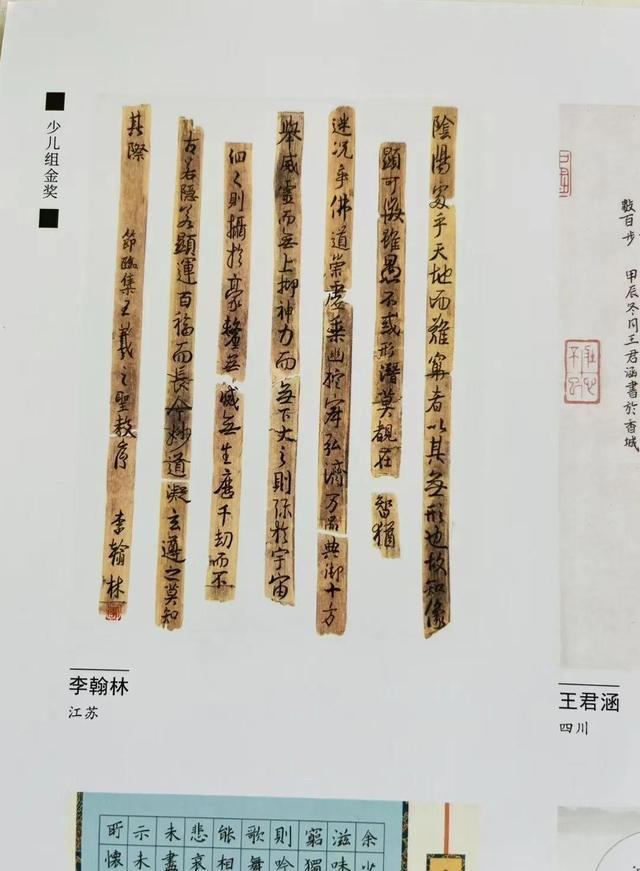 少儿组金奖
陰陽處乎天地而難窮者以其無形也故知像
顯可徵雖愚不惑形潛莫覩在 智猶
迷況乎佛道崇虛乘幽控寂弘濟万品典御十方
舉威靈而無上抑神力而無下大之則弥於宇宙
細之則攝於豪釐無滅無生歷千劫而不
古若隱若顯運百福而長今妙道凝玄遵之莫知
其際 節臨集王羲之聖教序 李翰林
李翰林
江苏
數百步 甲辰冬月王君涵書於香城
王君涵
四川
余少
滋味
窮獨
則吟
歌舞
能相
悲哀
未盡
示未
懷